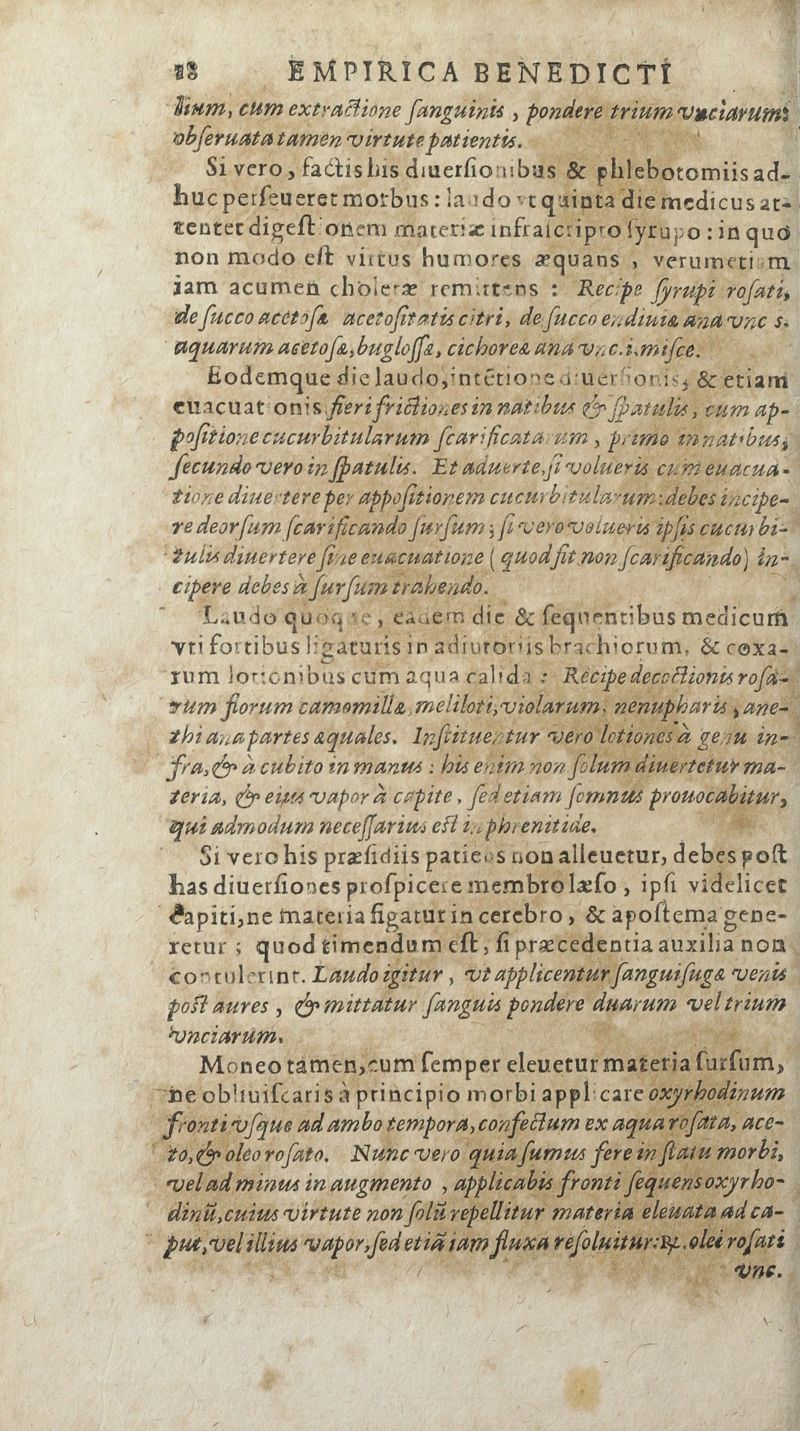 18 EMPIRICA BENEDICTI
lium, cum extractione ſanguinis , pondere trium vnciarum:
obſeruata tamen virtute patientis.
Si vero, factis his diuerſionibus & phlebotomiis ad-
huc perſeueret morbus: laudo vt quinta die medicus at-
tentet digeſtionem materiæ infraſcripto ſyrupo : in quo
non modo eſt virtus humores æquans , verumetiam
iam acumen choleræ remittens : Recipe ſyrupi roſati,
de ſucco acetoſæ acetoſitatis citri, de ſucco endiuiæ ana vnc s.
aquarum acetoſæ, bugloſſæ, cichoreæ ana vnc.i. miſce.
Eodemque die laudo, intētione diuerſionis, & etiam
euacuationis fieri frictiones in natibus & ſpatulis, cum ap-
poſitione cucurbitularum ſcarificatarum , primo in natibus,
ſecundo vero in ſpatulis. Et aduerte, ſi volueris cum euacua-
tione diuertere per appoſitionem cucurbitularum: debes incipe-
re deorſum ſcarificando ſurſum; ſi vero volueris ipſis cucurbi-
tulis diuertere ſine euacuatione ( quod fit non ſcarificando) in-
cipere debes à ſurſum trahendo.
Laudo quoque, eadem die & ſequentibus medicum
vti fortibus ligaturis in adiutoriis brachiorum, & coxa-
rum lotionibus cum aqua calida : Recipe decoctionis roſa-
rum florum camomillæ, meliloti, violarum, nenupharis, ane-
thi ana partes æquales. Inſtituentur vero lotiones à genu in-
fra, & à cubito in manus : his enim non ſolum diuertetur ma-
teria, & eius vapor à capite, ſed etiam ſomnus prouocabitur,
qui admodum neceſſarius eſt in phrenitide.
Si vero his præſidiis patiens non alleuetur, debes poſt
has diuerſiones proſpicere membro læſo , ipſi videlicet
capiti, ne materia figatur in cerebro, & apoſtema gene-
retur ; quod timendum eſt, ſi præcedentia auxilia non
contulerint. Laudo igitur , vt applicentur ſanguiſugæ venis
poſt aures , & mittatur ſanguis pondere duarum vel trium
vnciarum.
Moneo tamen, cum ſemper eleuetur materia ſurſum,
ne obliuiſcaris à principio morbi applicare oxyrhodinum
fronti vſque ad ambo tempora, confectum ex aqua roſata, ace-
to, & oleo roſato. Nunc vero quia ſumus fere in ſtatu morbi,
vel ad minus in augmento , applicabis fronti ſequens oxyrho-
dinū, cuius virtute non ſolū repellitur materia eleuata ad ca-
put, vel illius vapor, ſed etiā iam fluxa reſoluitur: ℞. olei roſati
vnc.